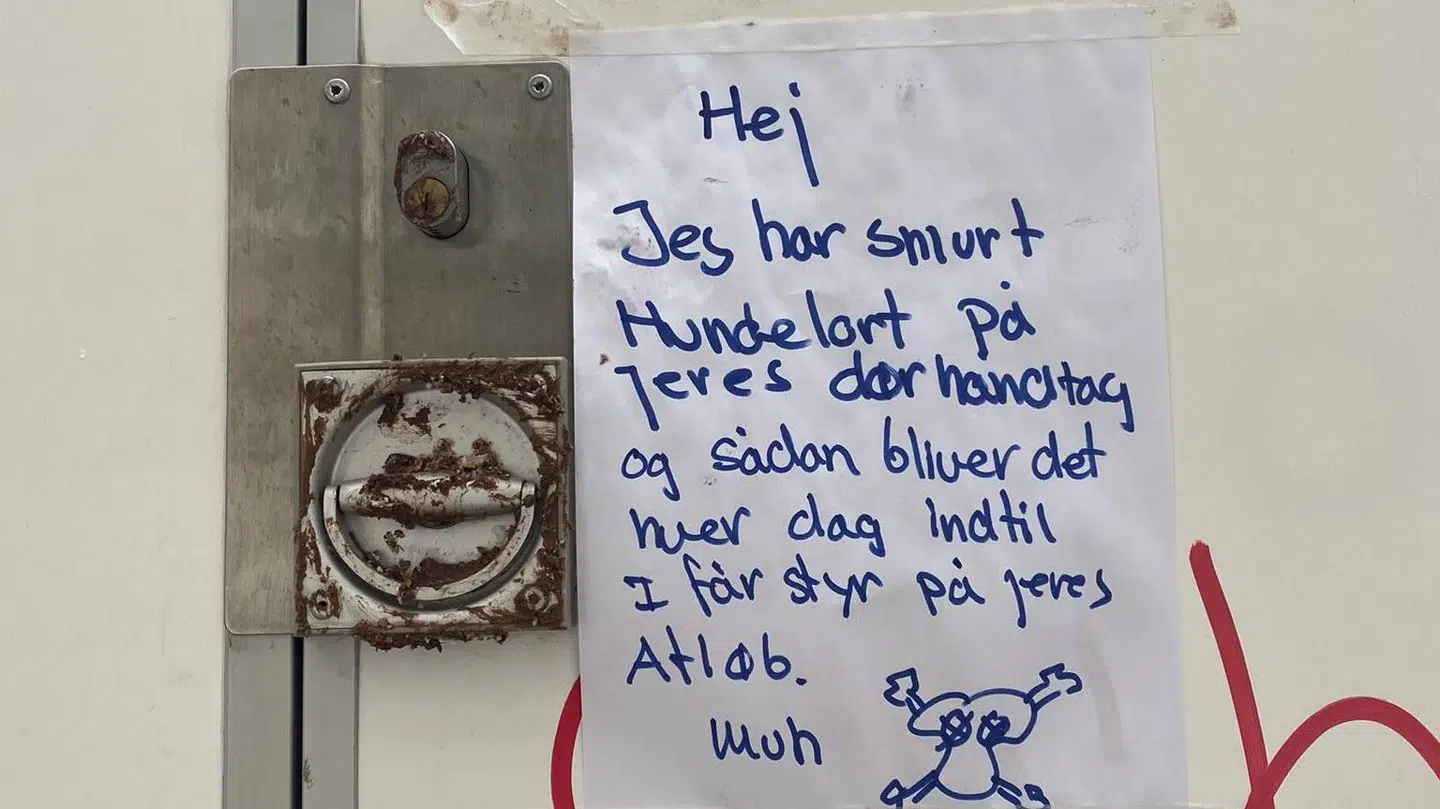 Hej
Jeg har smurt
Hundelort på
jeres dørhandtag
og sådan bliver det
hver dag indtil
I får styr på jeres
Afløb.
Muh